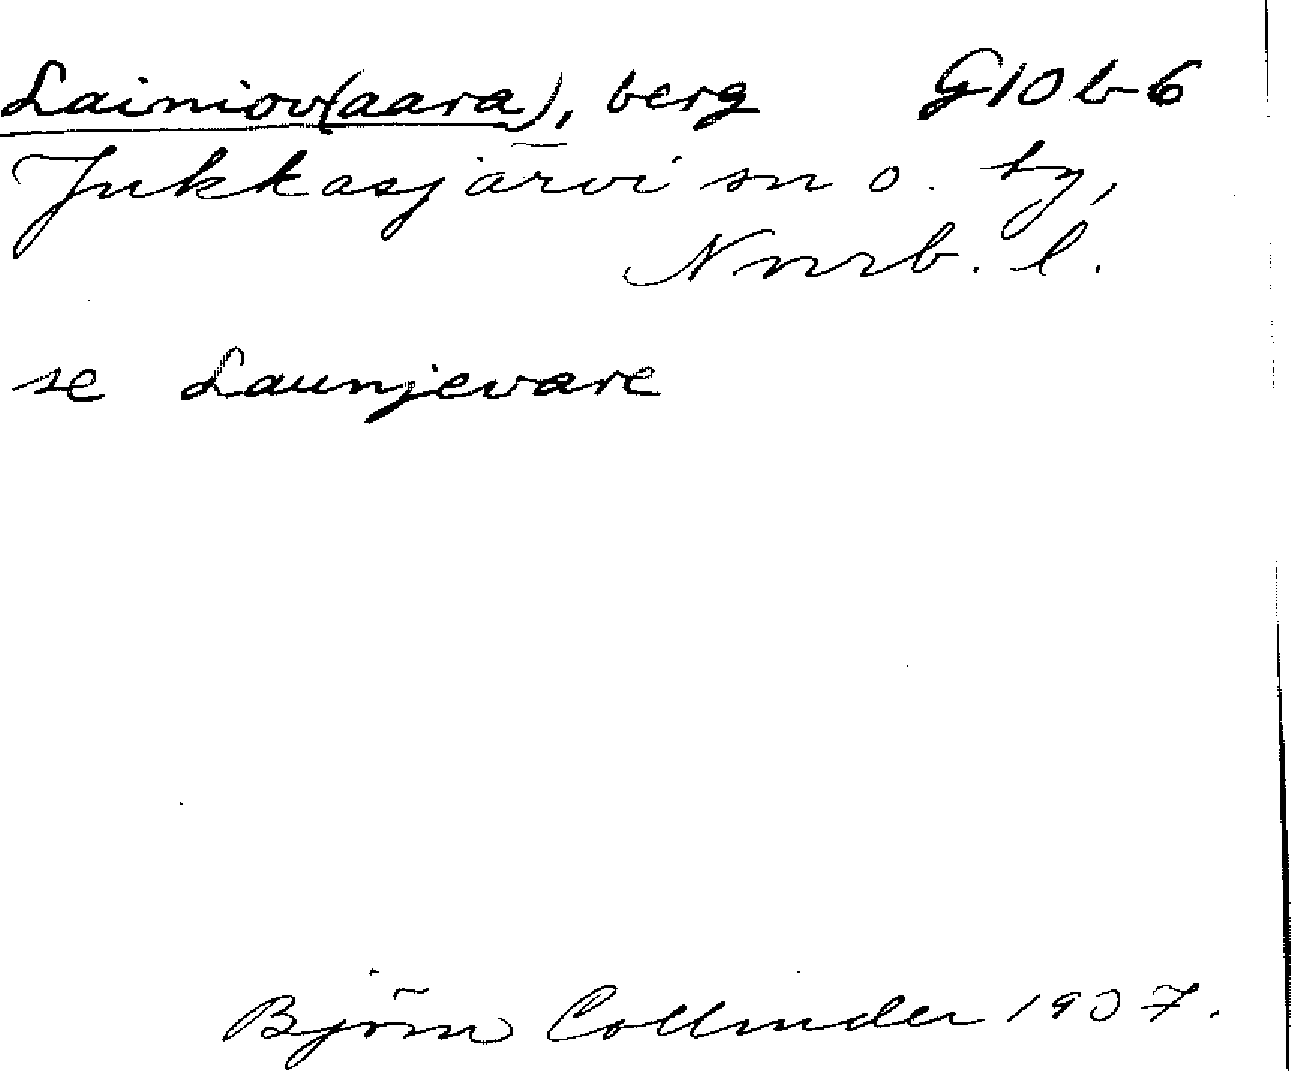 Lainiov(aara), berg G10b6
Jukkasjärvi sn o. by,
Nnrb. l.
se Launjevare
Björn Collinder 1937.